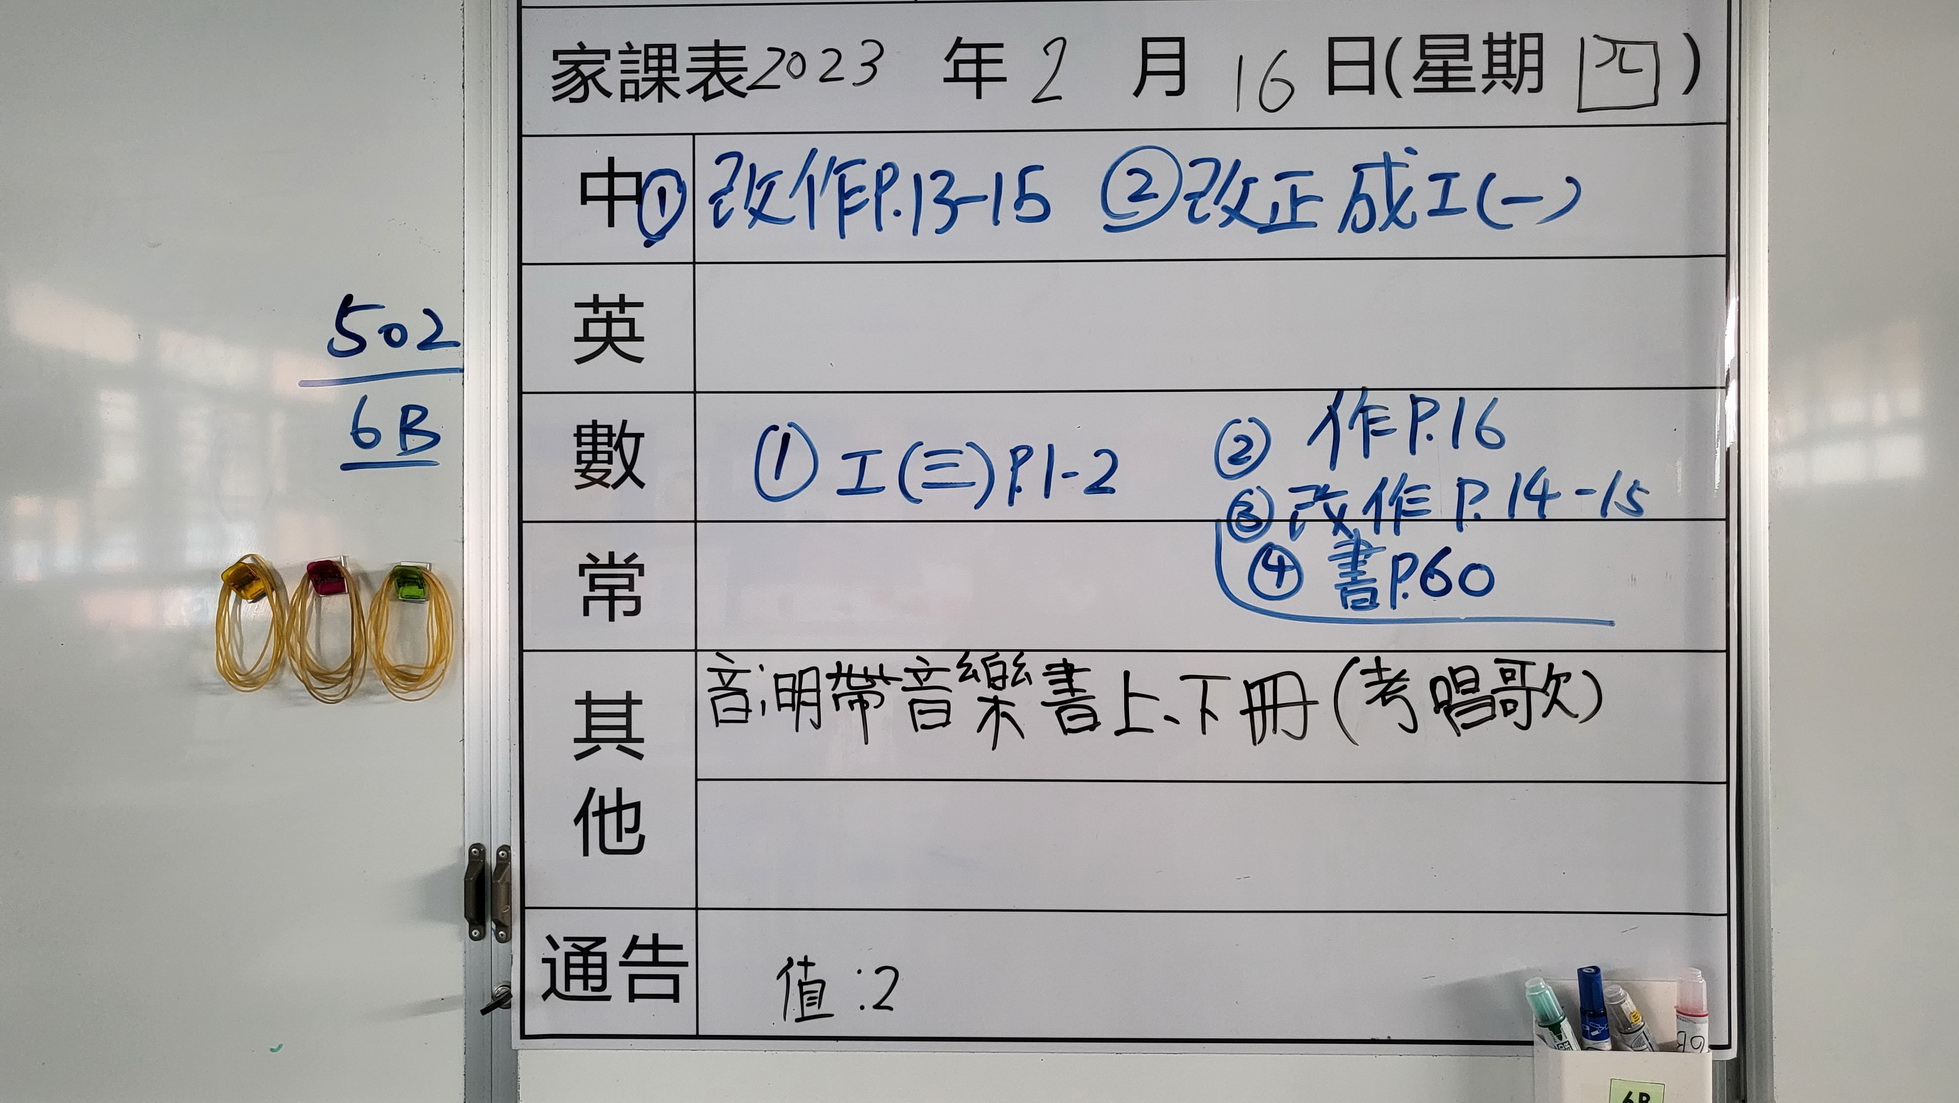 家課表2023年2月16日(星期四)
中①改作P.13-15 ②改正成工(一)
英
502
6B
數 ①工(三)P.1-2 ②作P.16
③改作P.14-15
常 ④書P.60
其他 音:明帶音樂書上、下冊(考唱歌)
通告 值:2
6B